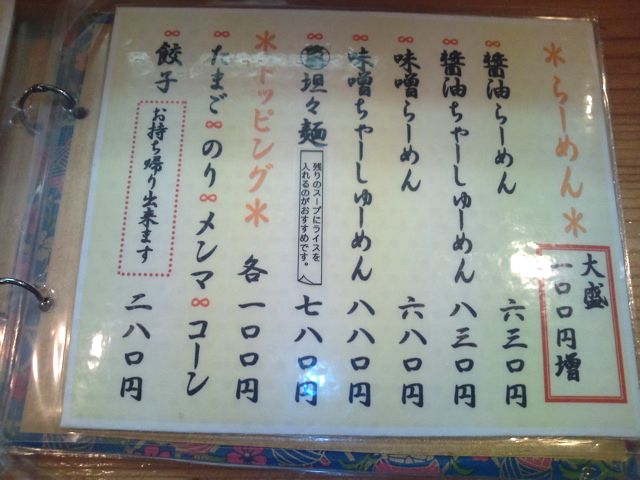 *らーめん*
大盛
一〇〇円増
∞醤油らーめん 六三〇円
∞醤油ちゃーしゅーめん 八三〇円
∞味噌らーめん 六八〇円
∞味噌ちゃーしゅーめん 八八〇円
∞坦々麺 七八〇円
残りのスープにライスを
入れるのがおすすめです。
*トッピング* 各一〇〇円
∞たまご∞のり∞メンマ∞コーン
∞餃子 二八〇円
お持ち帰り出来ます